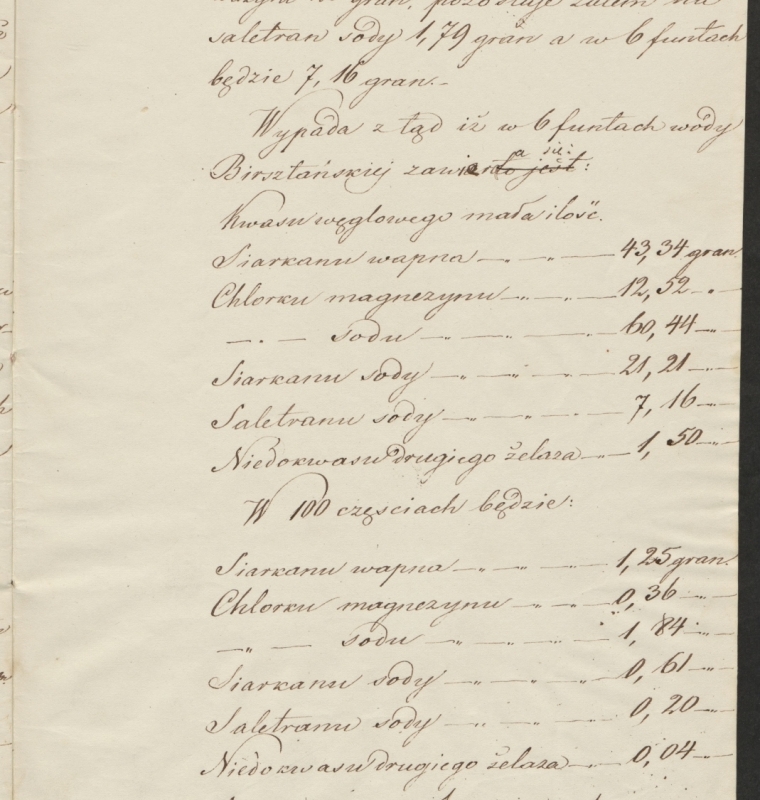 saletran sody 1,79 gran a w 6 funtach
będzie 7,16 gran.-
Wypada z tąd iż w 6 funtach wody
a się:
Birsztańskiej zawiera to jest:
Kwasu węglowego mała ilość.
Siarkanu wapna — „ — „ — 43,34 gran.
Chlorku magnezynu — „ — „ — 12,52 — „
— „ — sodu — „ — „ — 60,44 — „ —
Siarkanu sody — „ — „ — 21,21 — „ —
Saletranu sody — „ — „ — 7,16 — „ —
Niedokwasu drugiego żelaza — „ — 1,50 — „ —
W 100 częsciach będzie:
Siarkanu wapna — „ — „ — 1,25 gran.
Chlorku magnezynu — „ — „ — 0,36 — „ —
— „ — sodu — „ — „ — 1,84 — „ —
Siarkanu sody — „ — „ — 0,61 — „ —
Saletranu sody — „ — „ — 0,20 — „ —
Niedokwasu drugiego żelaza — „ — 0,04 — „ —